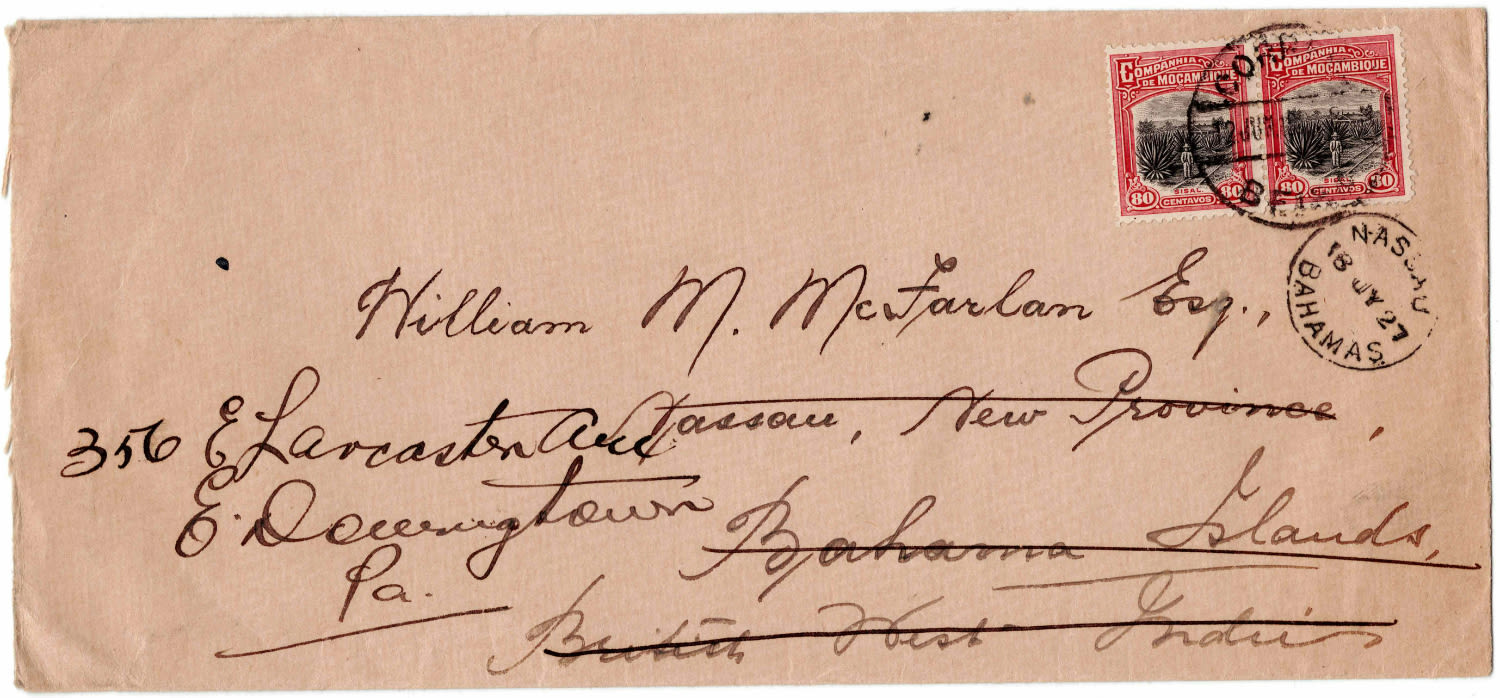 COMPANHIA
DE MOÇAMBIQUE
SISAL
80 CENTAVOS 80
COMPANHIA
DE MOÇAMBIQUE
SISAL
80 CENTAVOS 80
12 JUN
BEIRA
NASSAU
18 JY 27
BAHAMAS.
William M. McFarlan Esq.,
Nassau, New Province,
Bahama Islands,
British West Indies
356 E Lancaster Ave
E. Downingtown
Pa.